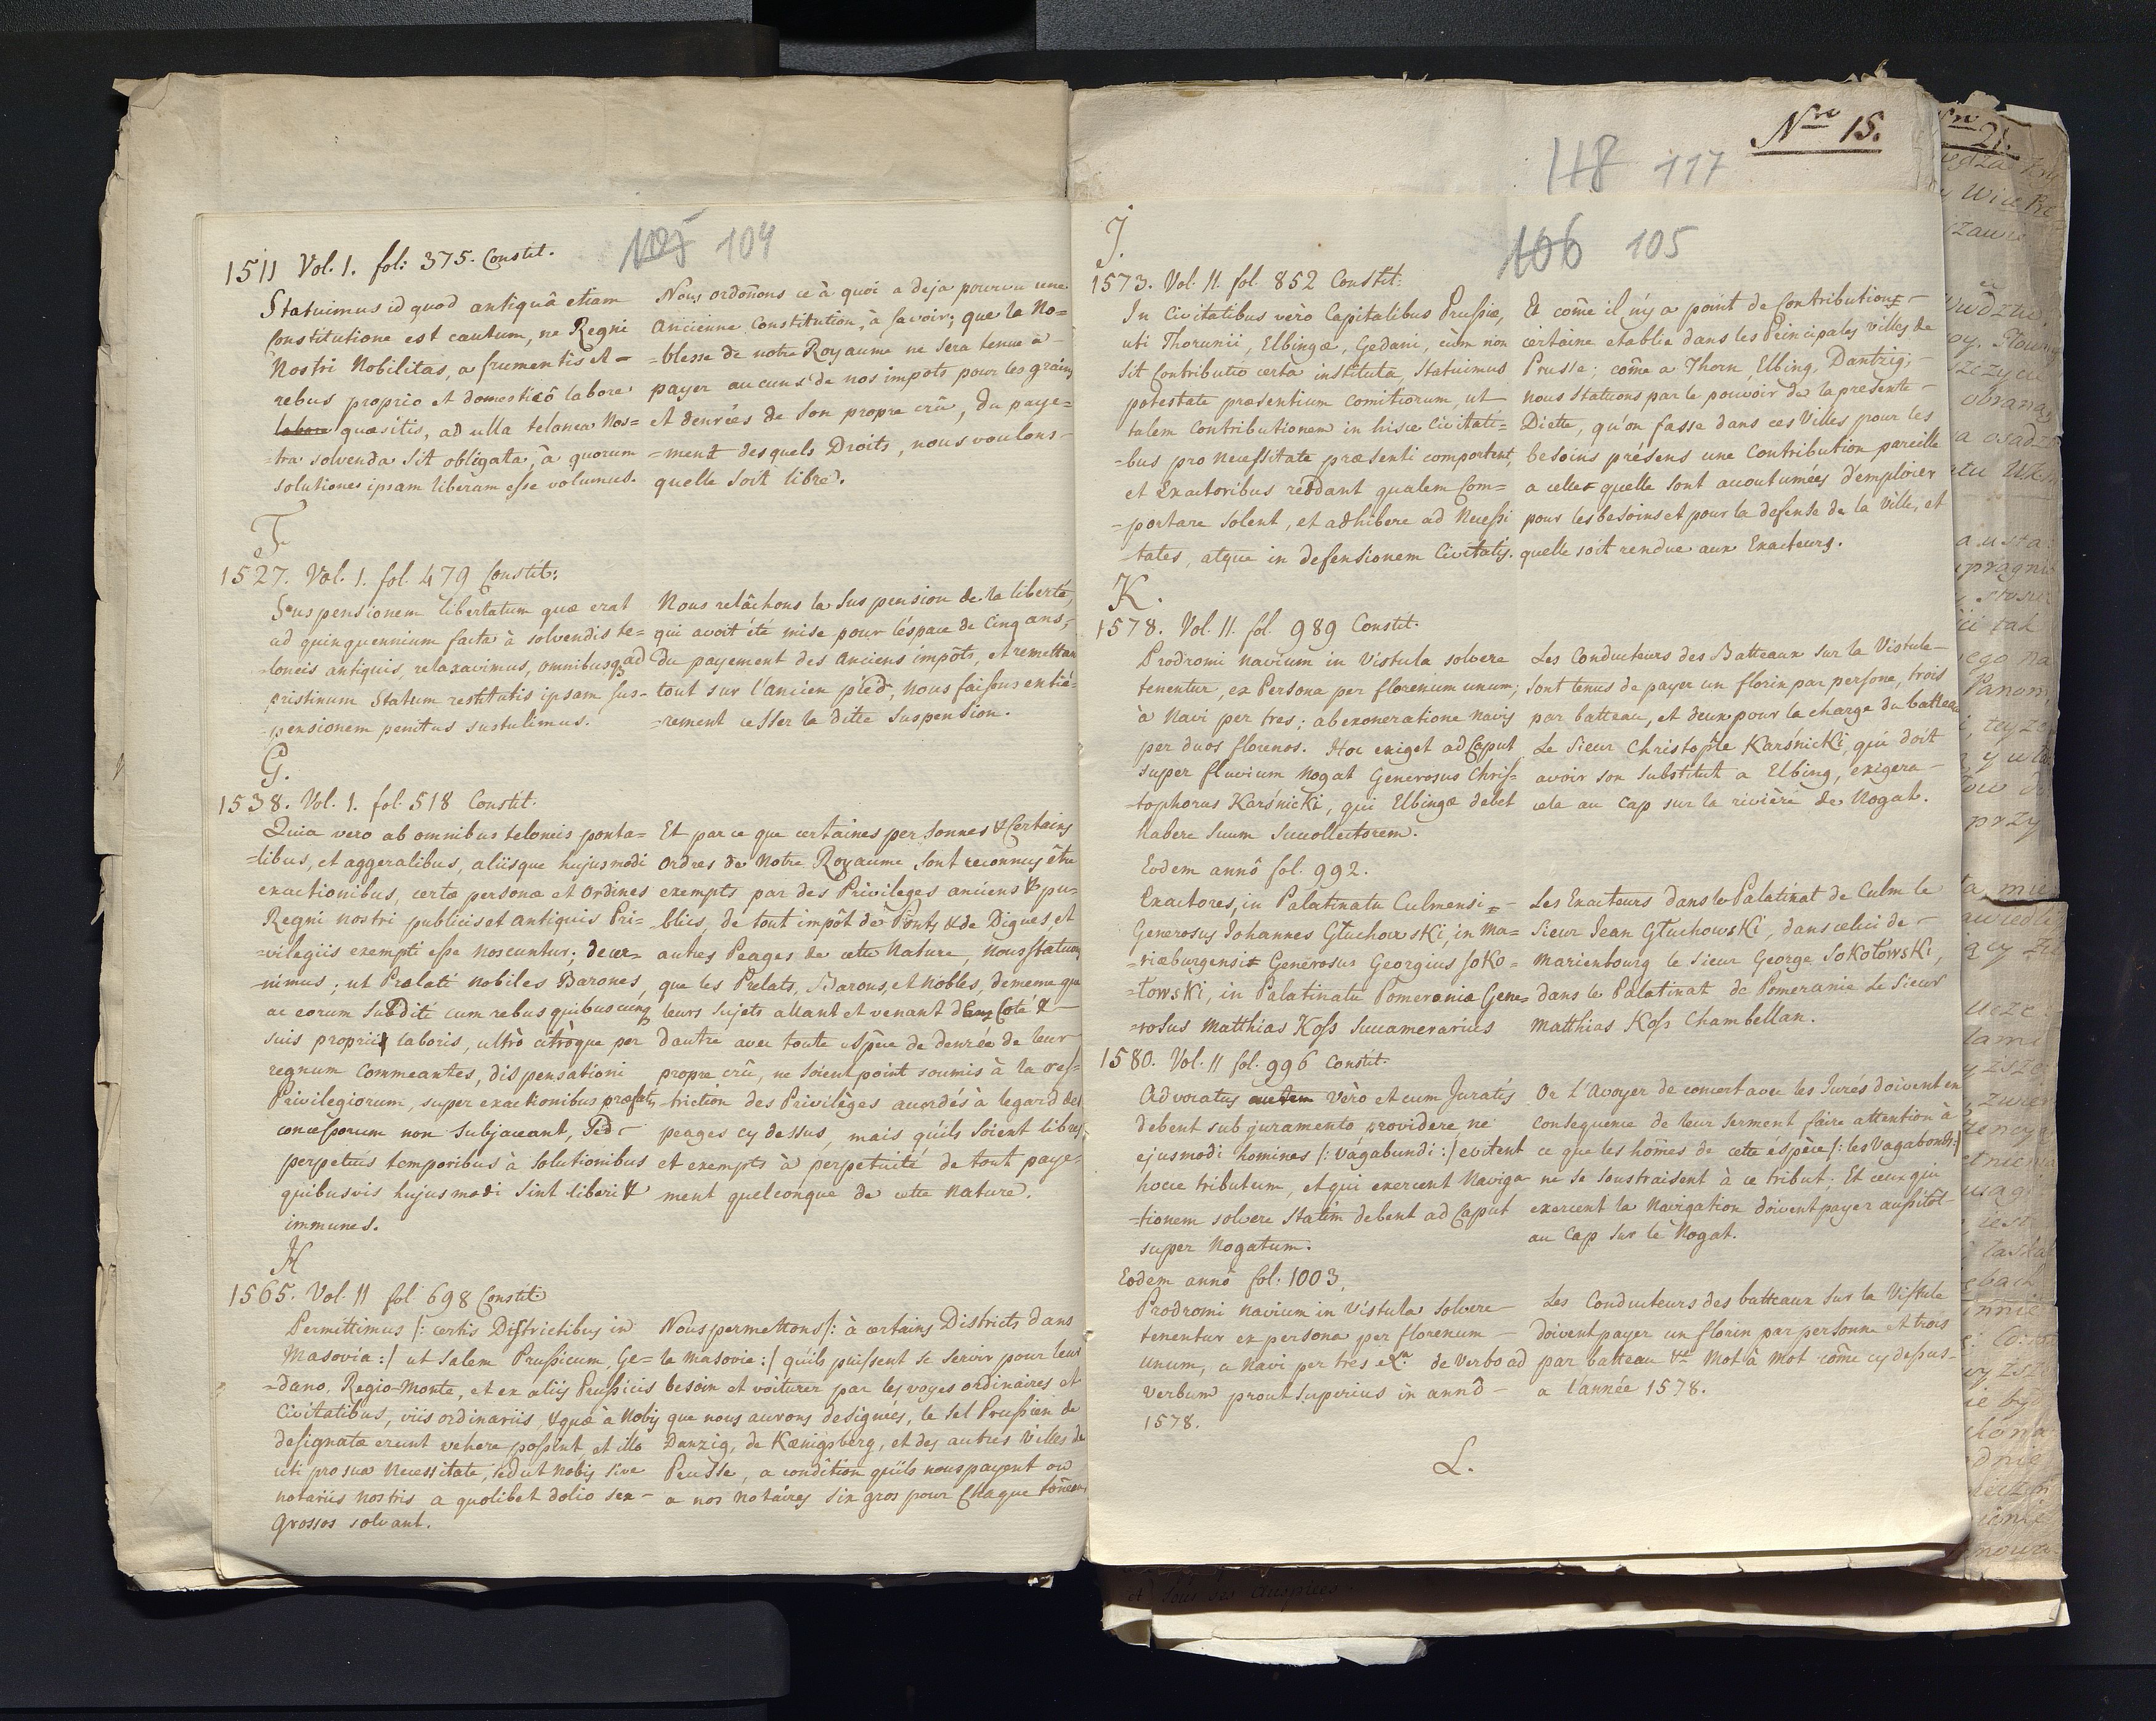 105 104
1511 Vol. 1. fol: 375. Constit.
Statuimus id quod antiquâ etiam
Constitutione est cautum, ne Regni
Nostri Nobilitas, a frumentis et
rebus proprio et domesticô labore
labore quæsitis, ad ulla telonea Nos=
=tra solvenda sit obligata, à quorum
solutiones ipsam liberam esse volumus.
Nous ordoñons ce à quoi a deja pourvu une
Ancienne Constitution, à savoir; que la No=
=blesse de notre Royaume ne sera tenue à
payer aucuns de nos impots pour les grains
et denrées de son propre crû, du paye=
=ment desquels Droits, nous voulons
quelle soit libre.
F
1527. Vol. 1. fol. 479 Constit:
Suspensionem libertatum quæ erat
ad quinquennium facta à solvendis te=
=loneis antiquis, relaxavimus, omnibusq3 ad
pristinum Statum restitutis ipsam sus=
=pensionem penitus sustulimus.
Nous relâchons la suspension de la liberté,
qui avoit été mise pour léspace de Cinq ans,
du payement des Anciens impôts, et remettant
tout sur l'ancien piéd, nous faisons entié=
=rement cesser la dite suspension.
G.
1538. Vol. 1. fol. 518 Constit.
Quia vero ab omnibus teloneis ponta=
=libus, et aggeralibus, aliisque hujusmodi
exactionibus, certæ personæ et Ordines
Regni nostri publicis et antiquis Pri=
=vilegiis exempti esse noscuntur; decer=
=nimus; ut Prælati nobiles Barones,
ac eorum Subditi cum rebus quibuscunq3
suis propriis laboris, ultrò citròque per
regnum Commeantes, dispensationi
Privilegiorum, super exactionibus præfatis
concessorum non Subjaceant, Sed
perpetuis temporibus à Solutionibus
quibusvis hujusmodi sint liberi &
immunes.
Et par ce que certaines personnes & Certains
Ordres de Notre Royaume sont reconnus être
exempts par des Privileges anciens & pu=
=blics, de tout impôt de Ponts & de Digues, et
autres Peages de cette Nature, Nous statuons
que les Prelats, Barons, et Nobles, dememe que
leurs Sujets allant et venant d'un Coté &
dautre avec toute espèce de denrée de leur
propre crû, ne soient point soumis à la res=
=triction des Privilèges accordés à legard des
peages cy dessus, mais qu'ils soient libres
et exempts à perpetuité de tout paye=
ment quelconque de cette Nature.
H
1565. Vol. 11 fol. 698 Constit.
Permittimus /: certis Districtibus in
Masovia :/ ut salem Prussicum, Ge=
=dano, Regio-Monte, et ex aliis Prussicis
Civitatibus, viis ordinariis, & quæ à Nobis
designatæ erunt vehere possint, et illo
uti pro sua Necessitate, sed ut nobis sive
notariis nostris, a quolibet dolio sex
grossos solvant.
Nous permettons /: à certains Districts dans
la Masovie :/ qu'ils puissent se servir pour leur
besoin et voiturer par les voyes ordinaires et
que nous aurons designées, le sel Prussien de
Danzig, de Kœnigsberg, et des autres Villes de
Prusse, a condition qu'ils nous payent ou
a nos notaires six gros pour Chaque toñeau
Nro 15.
118 117
106 105
J.
1573. Vol. 11. fol. 852 Constit:
In Civitatibus vèrò Capitalibus Prussiæ,
uti Thorunii, Elbingæ, Gedani, cùm non
sit Contributio certa instituta, Statuimus
potestate præsentium comitiorum, ut
talem Contributionem in hisce Civitati=
=bus pro necessitate præsenti comportent,
et Exactoribus reddant qualem Com=
=portare solent, et adhibere ad Necessi
tates, atque in defensionem Civitatis.
Et coñe il n'y a point de Contributions
certaine etablie dans les Principales villes de
Prusse; coñe a Thorn, Elbing, Dantzig;
nous statuons par le pouvoir de la presente
Diette, qu'on fasse dans ces Villes pour les
besoins présens une Contribution pareille
a celle quelle sont accoutumées d'emploier
pour les besoins et pour la defense de la Ville, et
quelle soit rendue aux Exacteurs.
K.
1578. Vol. 11. fol. 989 Constit.
Prodromi navium in Vistula solvere
tenentur, ex Persona per florenum unum;
à Navi per tres; ab exoneratione navis
per duos florenos. Hoc exiget ad Caput
super fluvium Nogat Generosus Chris=
=tophorus Karśnicki, qui Elbingæ debet
habere suum Succollectorem.
Les Conducteurs des Batteaux sur la Vistule
sont tenus de payer un florin par persone, trois
par batteau, et deux pour la charge du batteau
Le Sieur Christophe Karśnicki, qui doit
avoir son substitut a Elbing, exigera
cela au Cap sur la rivière de Nogat.
Eodem annô fol. 992.
Exactores, in Palatinatu Culmensi
Generosus Johannes Głuchowski, in Ma=
=riæburgensi Generosus Georgius Soko=
=łowski, in Palatinatu Pomeraniæ Gene=
=rosus Matthias Koss Succamerarius
Les Exacteurs dans le Palatinat de Culm le
Sieur Jean Głuchowski, dans celui de
Marienbourg le Sieur George Sokołowski,
dans le Palatinat de Pomeranie Le Sieur
Matthias Koss Chambellan.
1580. Vol. 11 fol. 996 Constit.
Advocatus autem Vèrò et cum Juratis
debent sub juramento providere ne
ejusmodi homines /: vagabundi :/ evitent
hocce tributum, et qui exercent Naviga
=tionem solvere statim debent ad Caput
super Nogatum.
Or l'Avoyer de concert avec les Jurés doivent en
consequence de leur serment faire attention à
ce que les hom̃es de cette éspèce /: les Vagabonds :/
ne se soustraisent à ce tribut; Et ceux qui
exercent la Navigation doivent payer aussitôt
au Cap sur le Nogat.
Eodem annô fol: 1003.
Prodromi navium in Vistula solvere
tenentur ex persona per florenum
unum, a navi per tres &ca de Verbo ad
verbum prout superius in annô
1578.
Les Conducteurs des batteaux sur la Vistule
doivent payer un florin par personne et trois
par batteau &c Mot à Mot coñe cy dessus
a l'année 1578.
L.